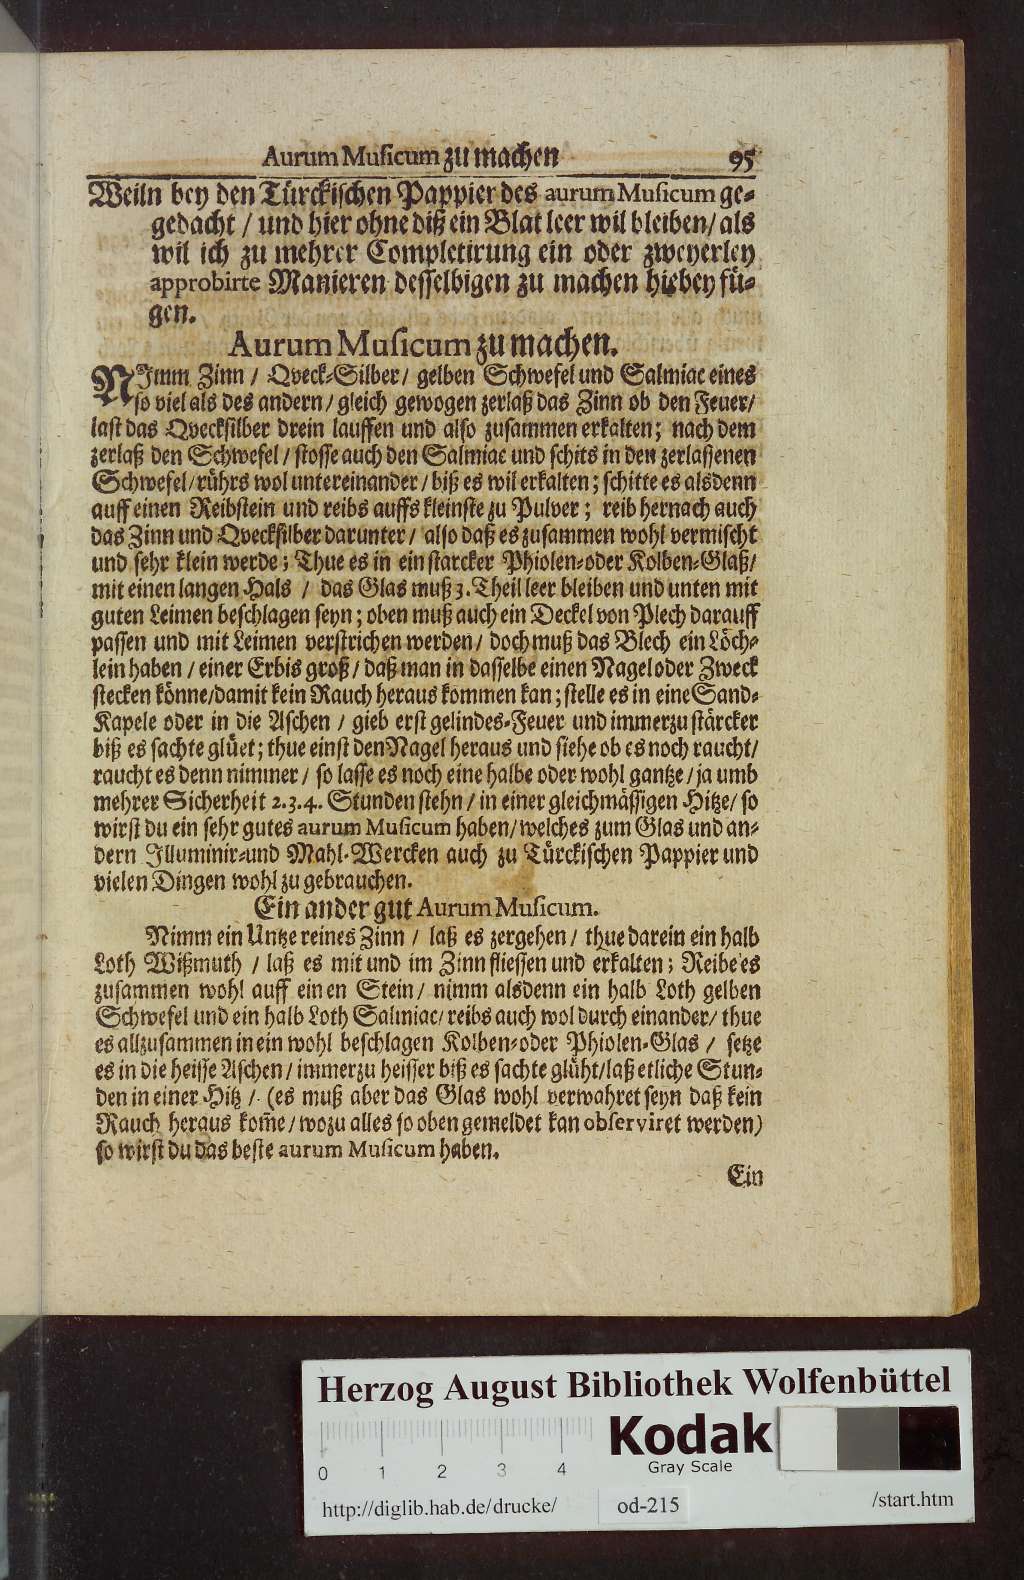 Aurum Musicum zu machen 95
Weiln bey den Türckischen Pappier des aurum Musicum ge-
gedacht / und hier ohne diß ein Blat leer wil bleiben / als
wil ich zu mehrer Completirung ein oder zweyerley
approbirte Manieren desselbigen zu machen hiebey fü-
gen.
Aurum Musicum zu machen.
NImm Zinn / Qveck-Silber / gelben Schwefel und Salmiac eines
so viel als des andern / gleich gewogen zerlaß das Zinn ob den Feuer /
last das Qvecksilber drein lauffen und also zusammen erkalten; nach dem
zerlaß den Schwefel / stosse auch den Salmiac und schits in den zerlassenen
Schwefel / rührs wol untereinander / biß es wil erkalten; schitte es alsdenn
auff einen Reibstein und reibs auffs kleinste zu Pulver; reib hernach auch
das Zinn und Qvecksilber darunter / also daß es zusammen wohl vermischt
und sehr klein werde; Thue es in ein starcker Phiolen-oder Kolben-Glaß /
mit einen langen Hals / das Glas muß 3. Theil leer bleiben und unten mit
guten Leimen beschlagen seyn; oben muß auch ein Deckel von Plech darauff
passen und mit Leimen verstrichen werden / doch muß das Blech ein Löch-
lein haben / einer Erbis groß / daß man in dasselbe einen Nagel oder Zweck
stecken könne / damit kein Rauch heraus kommen kan; stelle es in eine Sand-
Kapele oder in die Aschen / gieb erst gelindes-Feuer und immerzu stärcker
biß es sachte glüet; thue einst den Nagel heraus und siehe ob es noch raucht /
raucht es denn nimmer / so lasse es noch eine halbe oder wohl gantze / ja umb
mehrer Sicherheit 2.3.4. Stunden stehn / in einer gleichmässigen Hitze / so
wirst du ein sehr gutes aurum Musicum haben / welches zum Glas und an-
dern Illuminir-und Mahl-Wercken auch zu Türckischen Pappier und
vielen Dingen wohl zu gebrauchen.
Ein ander gut Aurum Musicum.
Nimm ein Untze reines Zinn / laß es zergehen / thue darein ein halb
Loth Wißmuth / laß es mit und im Zinn fliessen und erkalten; Reibe es
zusammen wohl auff einen Stein / nimm alsdenn ein halb Loth gelben
Schwefel und ein halb Loth Salmiac / reibs auch wol durch einander / thue
es allzusammen in ein wohl beschlagen Kolben-oder Phiolen-Glas / setze
es in die heisse Aschen / immerzu heisser biß es sachte glüht / laß etliche Stun-
den in einer Hitz / (es muß aber das Glas wohl verwahret seyn daß kein
Rauch heraus kom̃e / wozu alles so oben gemeldet kan observiret werden)
so wirst du das beste aurum Musicum haben.
Ein
Herzog August Bibliothek Wolfenbüttel
Kodak
Gray Scale
0 1 2 3 4
http://diglib.hab.de/drucke/ od-215 /start.htm